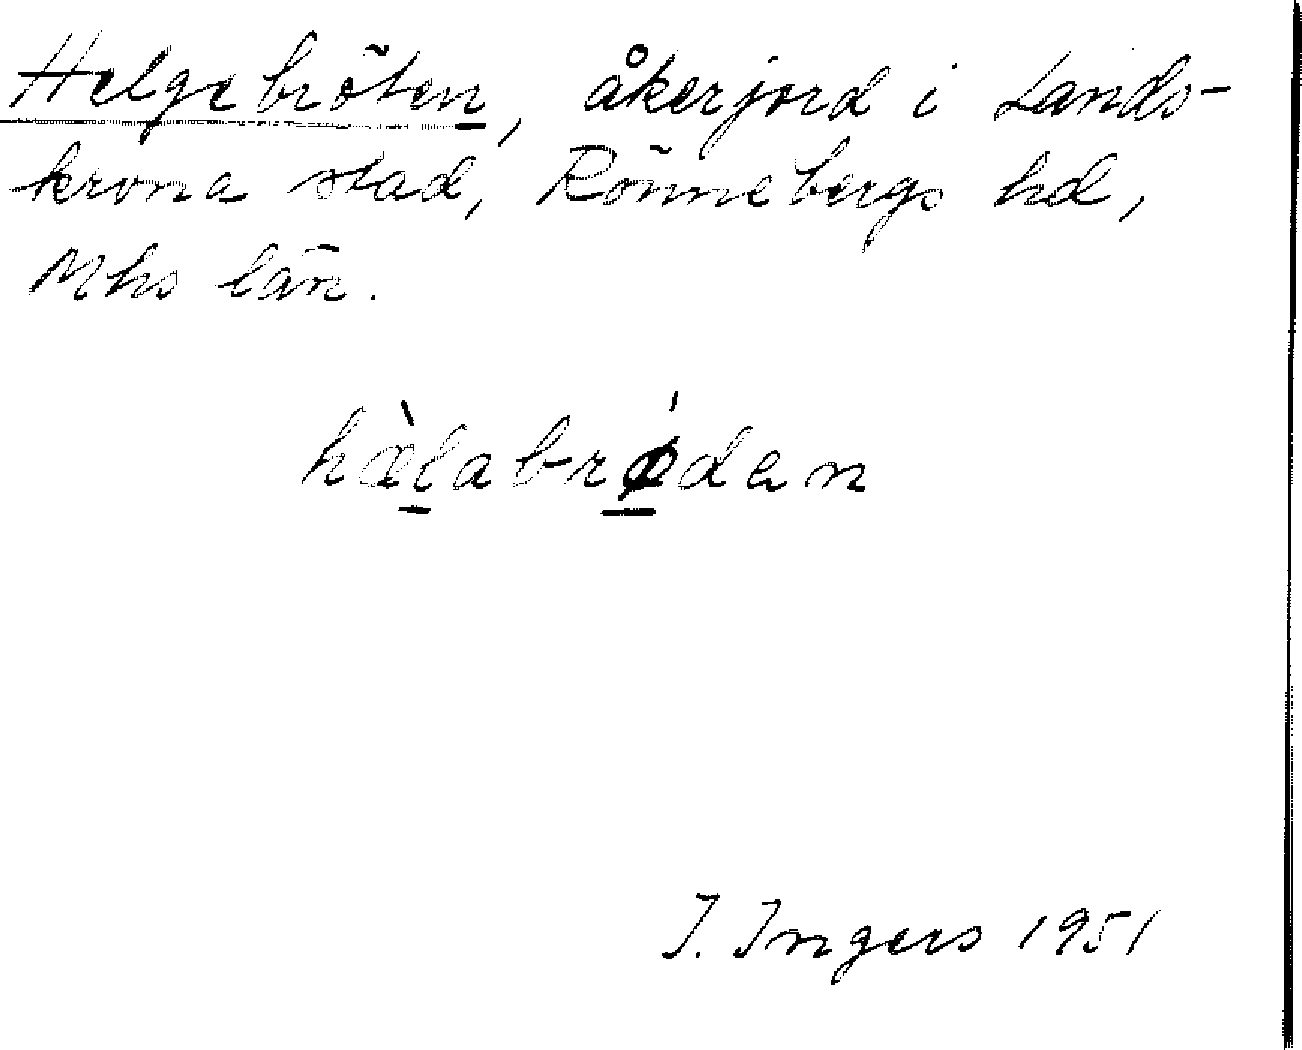 Helgebröten, åkerjord i Lands-
krona stad, Rönnebergs hd,
Mhs län.
hæ̀l̲abrǿ̲dan
I. Ingers 1951